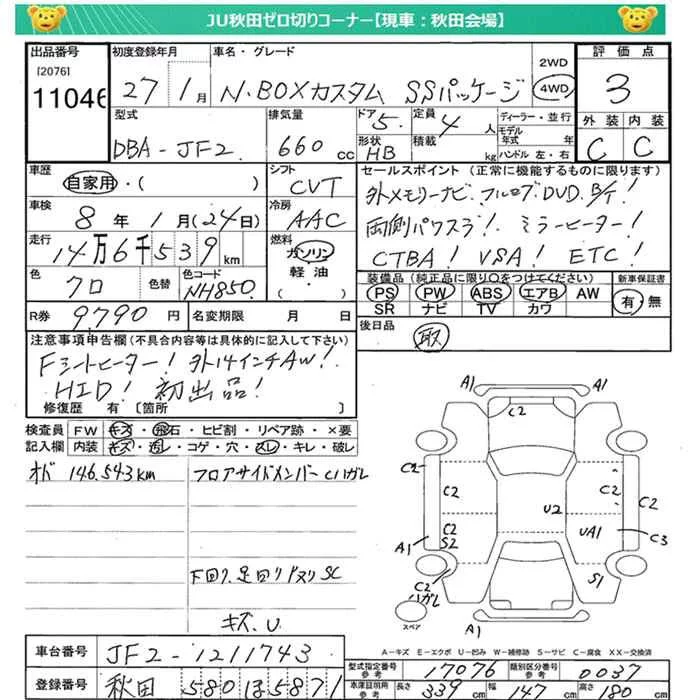 JU秋田ゼロ切りコーナー【現車：秋田会場】
出品番号 初度登録年月 車名・グレード 評価点
[2076]
11046 27 1月 N-BOXカスタム SSパッケージ 2WD 4WD 3
型式 排気量 ドア 5 定員 4人 ディーラー・並行 外装 内装
DBA-JF2 660cc 形状 HB 積載 kg モデル年式 年 ハンドル 左・右 C C
車歴 シフト セールスポイント（正常に機能するものに限ります）
自家用・( ) CVT 外メモリーナビ、フルセグ、DVD、B/T！
車検 8年1月(24日) 冷房 AAC 両側パワスラ！ ミラーヒーター！
走行 14万6千539km 燃料 ガソリン 軽油 ( ) CTBA！ VSA！ ETC！
色 クロ 色替 色コード NH850 装備品（純正品に限り○をつけてください） 新車保証書
PS PW ABS エアB AW 有・無
SR ナビ TV カワ
R券 9790円 名変期限 月 日 後日品 取
注意事項申告欄（不具合内容等は具体的に記入して下さい）
Fシートヒーター！ 外14インチAW！
HID！ 初出品！
修復歴 有 [箇所 ]
検査員 FW キズ・飛石・ヒビ割・リペア跡・×要
記入欄 内装 キズ・汚レ・コゲ・穴・スレ・キレ・破レ
オド 146.543km フロアサイドメンバー Cハガレ
下回り、足回りパスリ SC
キズ、U
A1 A1
C2
C2 C2 C2 C2
U2
C2 S2 UA1 C3
A1
C2 ハガレ S1
スペア A1
A－キズ E－エクボ U－凹み W－補修跡 S－サビ C－腐食 XX－交換済
車台番号 JF2-1211743
型式指定番号 参考 17076 類別区分番号 参考 0037
登録番号 秋田 580 ほ 5871
車庫証明用 参考 長さ 339cm 幅 147cm 高さ 180cm